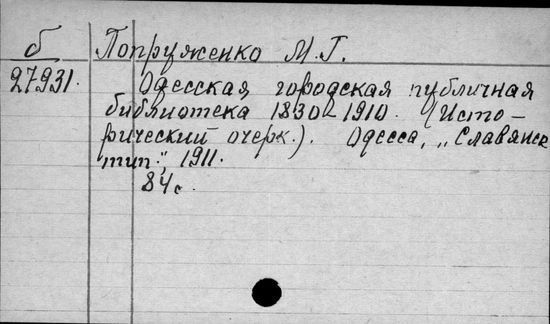 б Попруженко М.Г.
27931. Одесская городская публичная
библиотека 1830-1910. (Исто-
рический очерк.). Одесса, „Славянск
тип.", 1911.
84с.